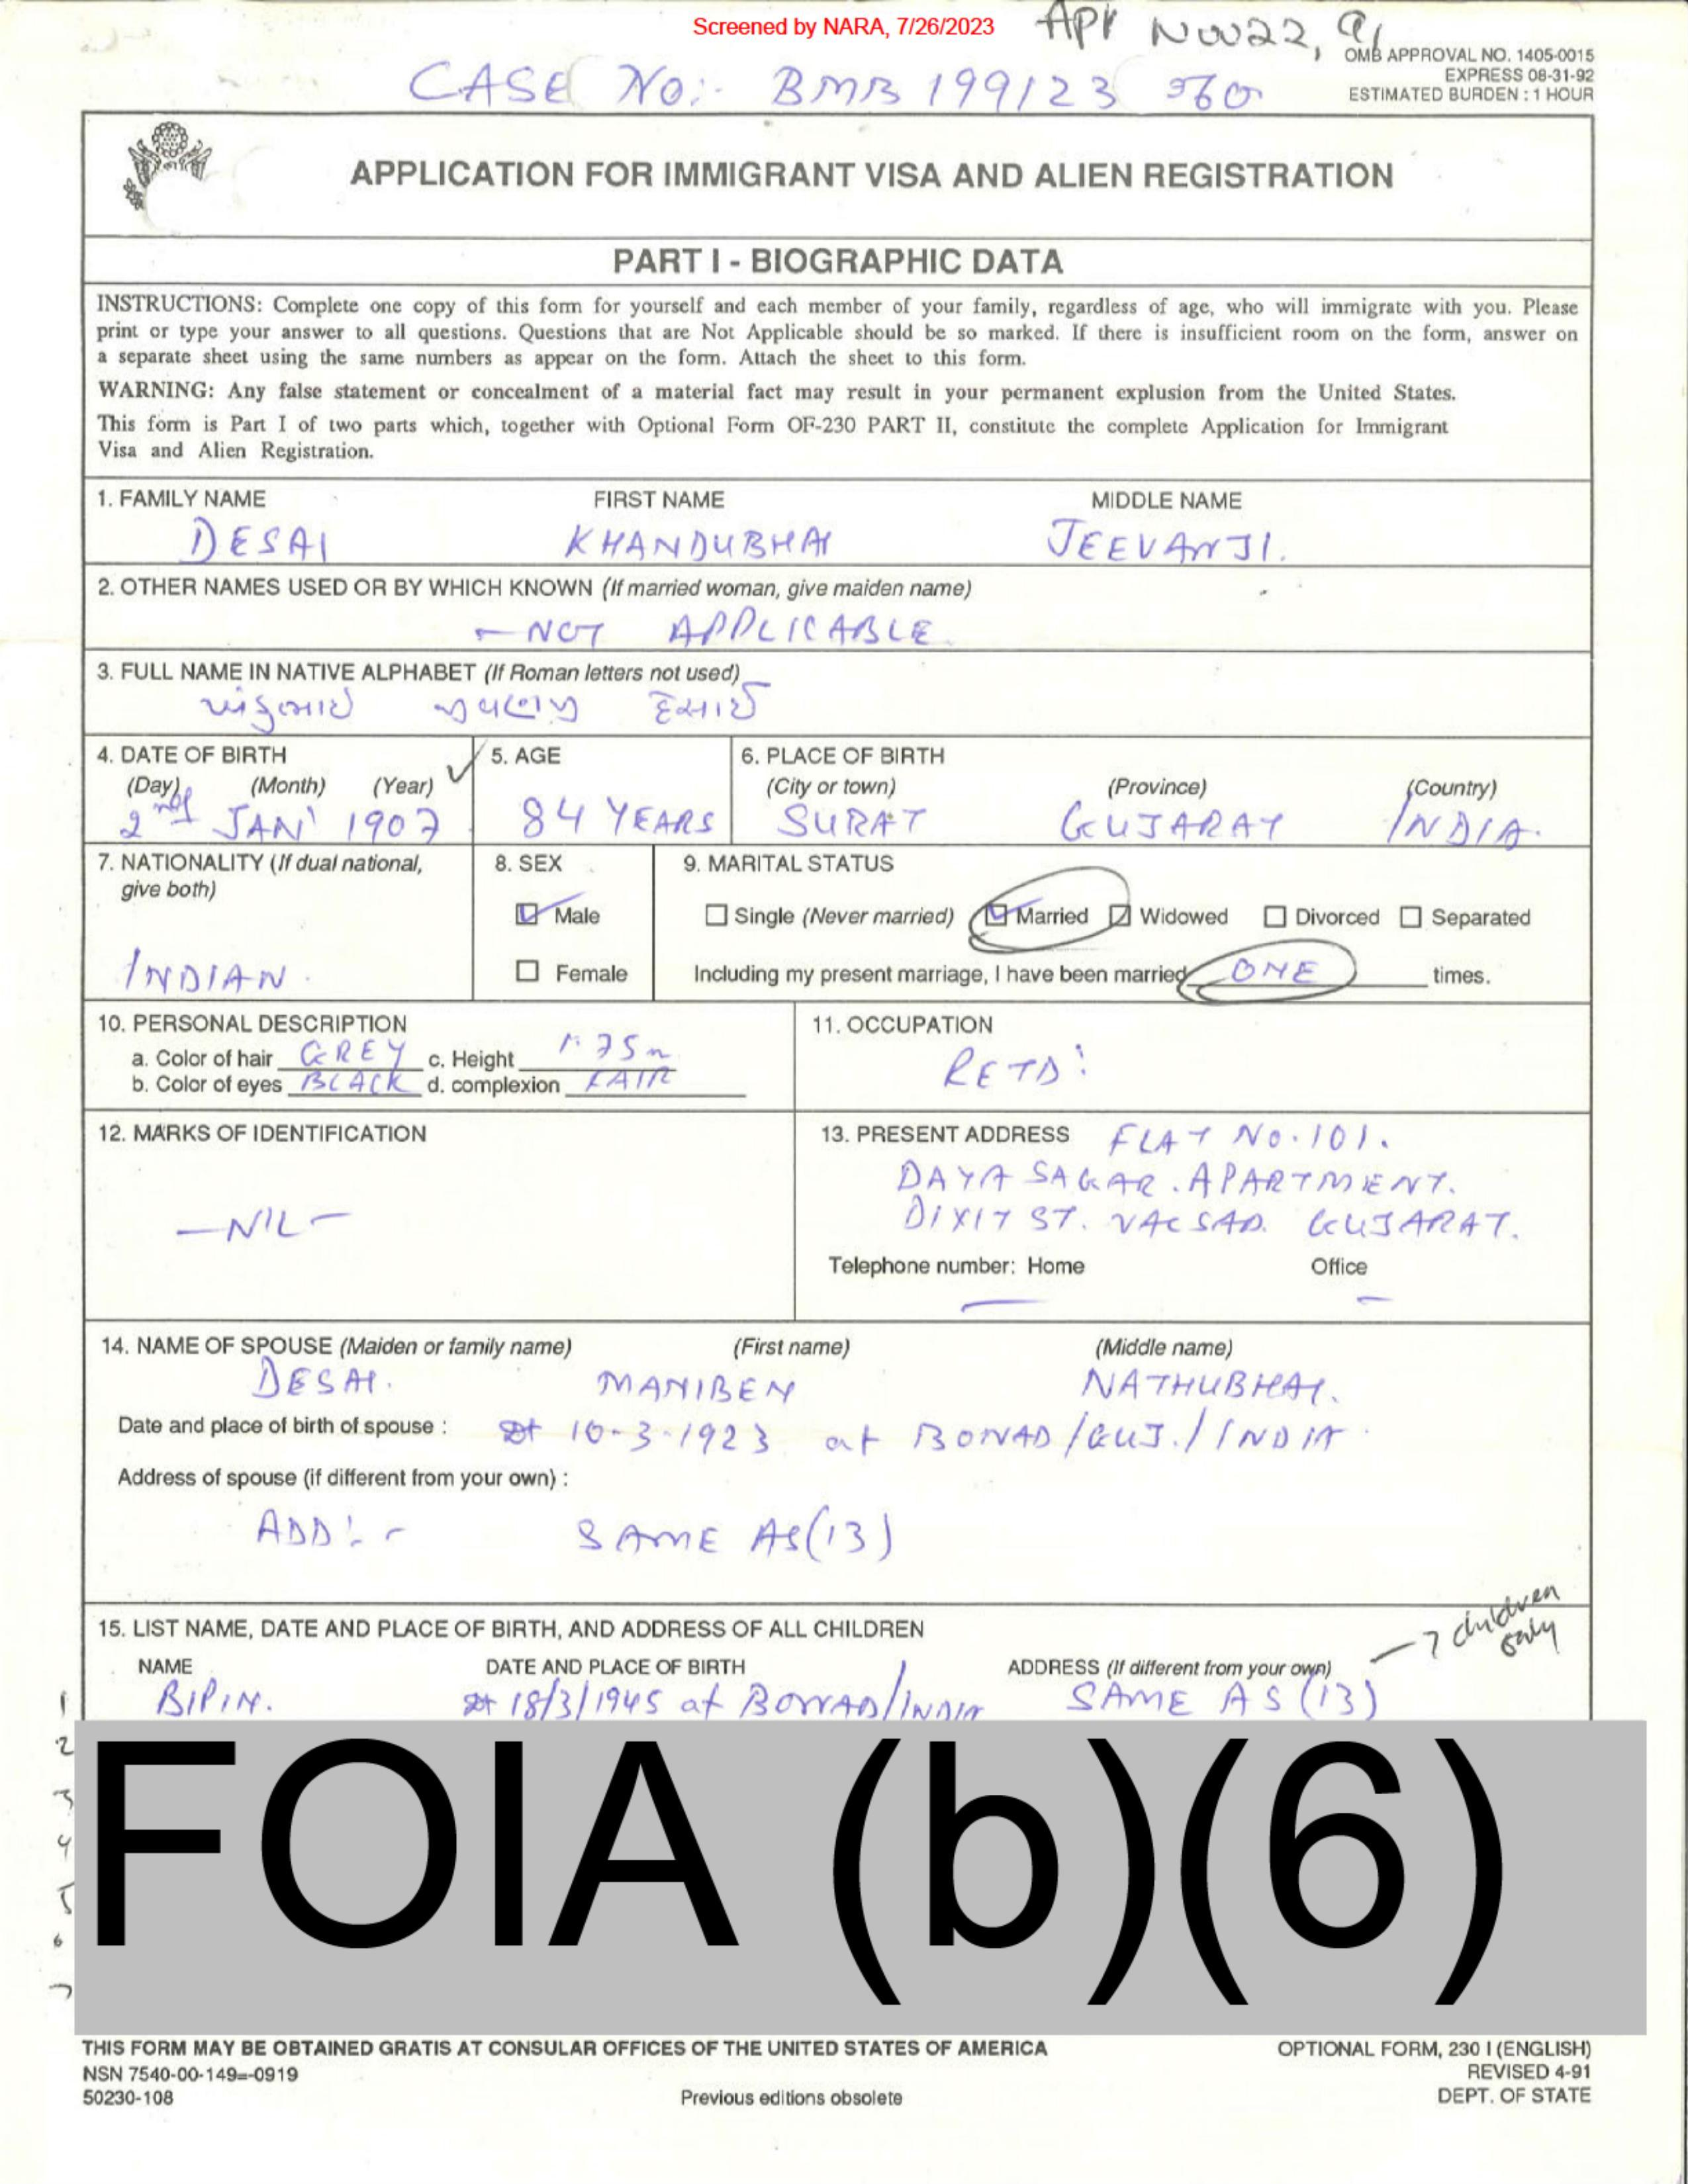 Screened by NARA, 7/26/2023
Apt Nov 22, 91
OMB APPROVAL NO. 1405-0015
EXPRESS 08-31-92
ESTIMATED BURDEN : 1 HOUR
CASE No:- BMB 199123 360
APPLICATION FOR IMMIGRANT VISA AND ALIEN REGISTRATION
PART I - BIOGRAPHIC DATA
INSTRUCTIONS: Complete one copy of this form for yourself and each member of your family, regardless of age, who will immigrate with you. Please
print or type your answer to all questions. Questions that are Not Applicable should be so marked. If there is insufficient room on the form, answer on
a separate sheet using the same numbers as appear on the form. Attach the sheet to this form.
WARNING: Any false statement or concealment of a material fact may result in your permanent explusion from the United States.
This form is Part I of two parts which, together with Optional Form OF-230 PART II, constitute the complete Application for Immigrant
Visa and Alien Registration.
1. FAMILY NAME FIRST NAME MIDDLE NAME
DESAI KHANDUBHAI JEEVANJI.
2. OTHER NAMES USED OR BY WHICH KNOWN (If married woman, give maiden name)
- NOT APPLICABLE
3. FULL NAME IN NATIVE ALPHABET (If Roman letters not used)
ખંડુભાઈ જીવણજી દેસાઈ
4. DATE OF BIRTH 5. AGE 6. PLACE OF BIRTH
(Day) (Month) (Year) (City or town) (Province) (Country)
2nd JAN' 1907 84 YEARS SURAT GUJARAT INDIA.
7. NATIONALITY (If dual national, 8. SEX 9. MARITAL STATUS
give both)
Male Single (Never married) Married Widowed Divorced Separated
INDIAN. Female Including my present marriage, I have been married ONE times.
10. PERSONAL DESCRIPTION 11. OCCUPATION
a. Color of hair GREY c. Height 1.75m
b. Color of eyes BLACK d. complexion FAIR
RETD:
12. MARKS OF IDENTIFICATION 13. PRESENT ADDRESS FLAT NO.101.
DAYA SAGAR. APARTMENT.
DIXIT ST. VALSAD. GUJARAT.
—NIL—
Telephone number: Home Office
— —
14. NAME OF SPOUSE (Maiden or family name) (First name) (Middle name)
DESAI. MANIBEN NATHUBHAI.
Date and place of birth of spouse : 10-3-1923 at BONAD/GUJ./INDIA
Address of spouse (if different from your own) :
ADD:- SAME AS(13)
15. LIST NAME, DATE AND PLACE OF BIRTH, AND ADDRESS OF ALL CHILDREN
— 7 children only
NAME DATE AND PLACE OF BIRTH ADDRESS (If different from your own)
1 BIPIN. 18/3/1945 at BONAD/INDIA SAME AS (13)
2
3
4
5
6
7
FOIA (b)(6)
THIS FORM MAY BE OBTAINED GRATIS AT CONSULAR OFFICES OF THE UNITED STATES OF AMERICA OPTIONAL FORM, 230 I (ENGLISH)
NSN 7540-00-149=-0919 REVISED 4-91
50230-108 Previous editions obsolete DEPT. OF STATE